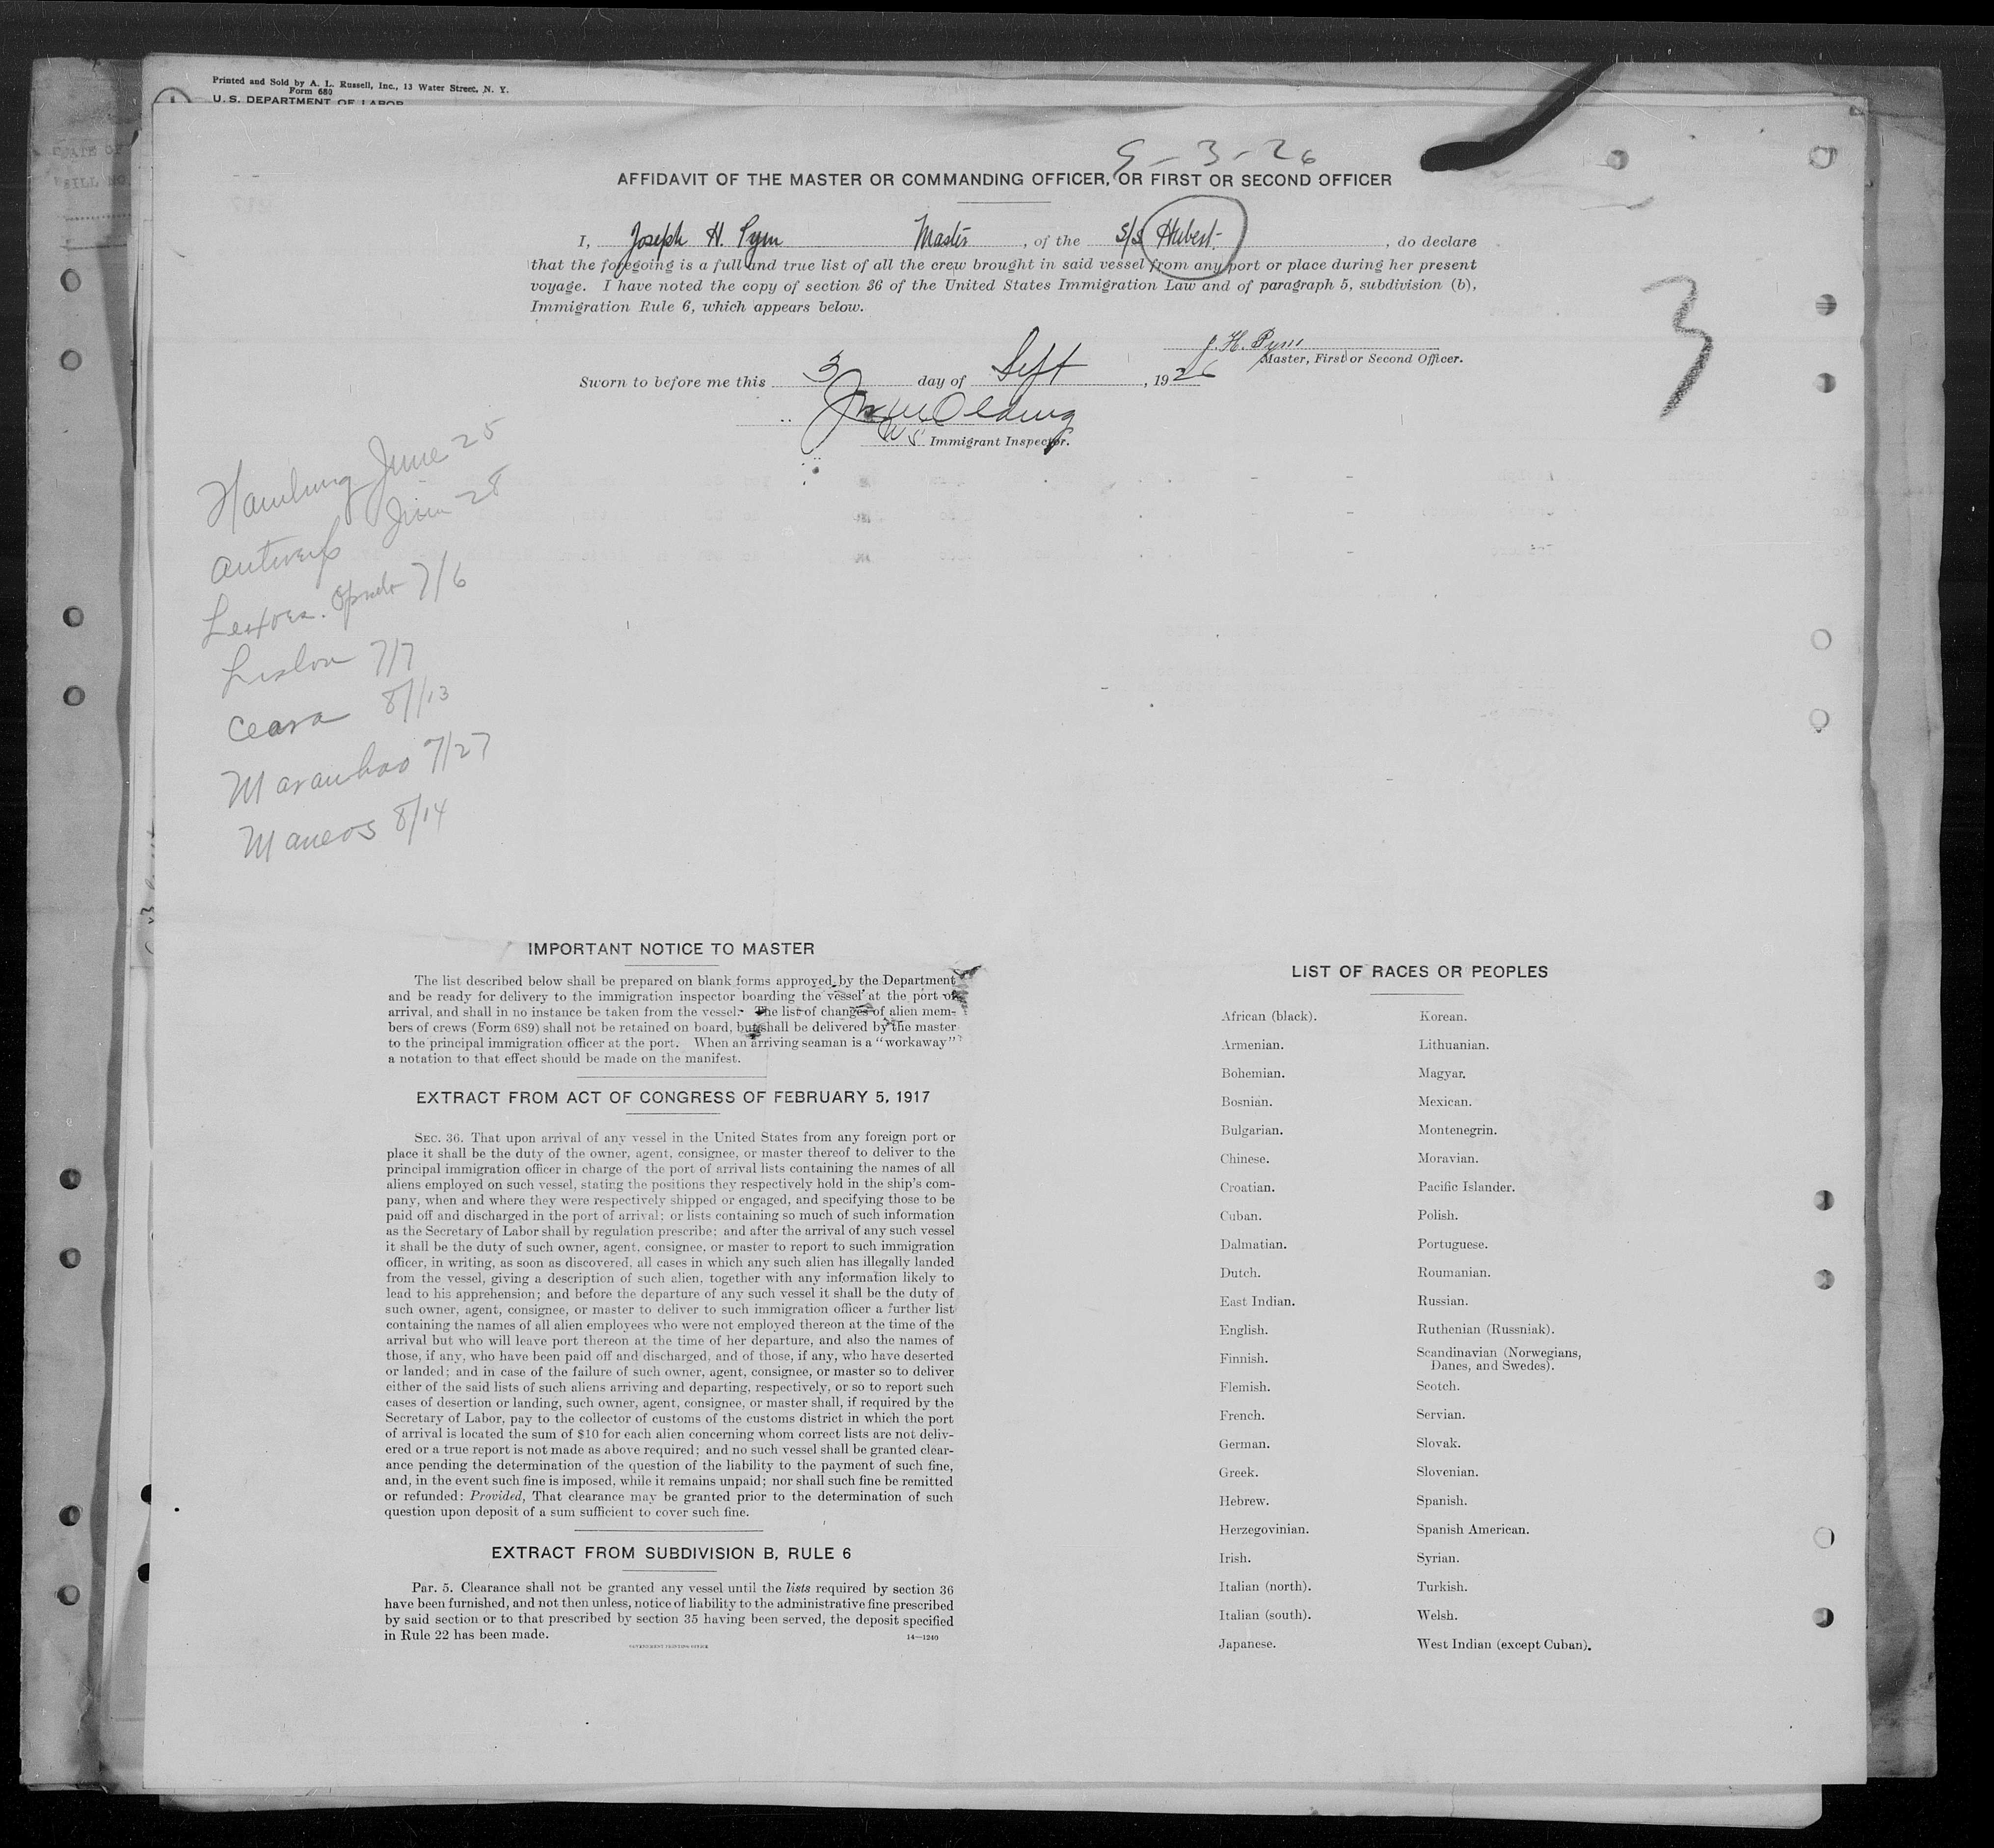 Printed and Sold by A. L. Russell, Inc., 13 Water Street, N. Y.
Form 680
U. S. DEPARTMENT OF LABOR
9-3-26
AFFIDAVIT OF THE MASTER OR COMMANDING OFFICER, OR FIRST OR SECOND OFFICER
I, Joseph H. Pym Master, of the S/S Hubert, do declare
that the foregoing is a full and true list of all the crew brought in said vessel from any port or place during her present
voyage. I have noted the copy of section 36 of the United States Immigration Law and of paragraph 5, subdivision (b),
Immigration Rule 6, which appears below.
3
J. H. Pym
Master, First or Second Officer.
Sworn to before me this 3 day of Sept, 1926
US Immigrant Inspector.
Hamburg June 25
Antwerp June 28
Leixoes. Oporto 7/6
Lisbon 7/7
Ceara 8/13
Maranhao 7/27
Manaos 8/14
IMPORTANT NOTICE TO MASTER
The list described below shall be prepared on blank forms approved by the Department
and be ready for delivery to the immigration inspector boarding the vessel at the port of
arrival, and shall in no instance be taken from the vessel. The list of changes of alien mem-
bers of crews (Form 689) shall not be retained on board, but shall be delivered by the master
to the principal immigration officer at the port. When an arriving seaman is a "workaway"
a notation to that effect should be made on the manifest.
EXTRACT FROM ACT OF CONGRESS OF FEBRUARY 5, 1917
SEC. 36. That upon arrival of any vessel in the United States from any foreign port or
place it shall be the duty of the owner, agent, consignee, or master thereof to deliver to the
principal immigration officer in charge of the port of arrival lists containing the names of all
aliens employed on such vessel, stating the positions they respectively hold in the ship's com-
pany, when and where they were respectively shipped or engaged, and specifying those to be
paid off and discharged in the port of arrival; or lists containing so much of such information
as the Secretary of Labor shall by regulation prescribe; and after the arrival of any such vessel
it shall be the duty of such owner, agent, consignee, or master to report to such immigration
officer, in writing, as soon as discovered, all cases in which any such alien has illegally landed
from the vessel, giving a description of such alien, together with any information likely to
lead to his apprehension; and before the departure of any such vessel it shall be the duty of
such owner, agent, consignee, or master to deliver to such immigration officer a further list
containing the names of all alien employees who were not employed thereon at the time of the
arrival but who will leave port thereon at the time of her departure, and also the names of
those, if any, who have been paid off and discharged, and of those, if any, who have deserted
or landed; and in case of the failure of such owner, agent, consignee, or master so to deliver
either of the said lists of such aliens arriving and departing, respectively, or so to report such
cases of desertion or landing, such owner, agent, consignee, or master shall, if required by the
Secretary of Labor, pay to the collector of customs of the customs district in which the port
of arrival is located the sum of $10 for each alien concerning whom correct lists are not deliv-
ered or a true report is not made as above required; and no such vessel shall be granted clear-
ance pending the determination of the question of the liability to the payment of such fine,
and, in the event such fine is imposed, while it remains unpaid; nor shall such fine be remitted
or refunded: Provided, That clearance may be granted prior to the determination of such
question upon deposit of a sum sufficient to cover such fine.
EXTRACT FROM SUBDIVISION B, RULE 6
Par. 5. Clearance shall not be granted any vessel until the lists required by section 36
have been furnished, and not then unless, notice of liability to the administrative fine prescribed
by said section or to that prescribed by section 35 having been served, the deposit specified
in Rule 22 has been made.
14—1240
GOVERNMENT PRINTING OFFICE
LIST OF RACES OR PEOPLES
African (black). Korean.
Armenian. Lithuanian.
Bohemian. Magyar.
Bosnian. Mexican.
Bulgarian. Montenegrin.
Chinese. Moravian.
Croatian. Pacific Islander.
Cuban. Polish.
Dalmatian. Portuguese.
Dutch. Roumanian.
East Indian. Russian.
English. Ruthenian (Russniak).
Finnish. Scandinavian (Norwegians,
Danes, and Swedes).
Flemish. Scotch.
French. Servian.
German. Slovak.
Greek. Slovenian.
Hebrew. Spanish.
Herzegovinian. Spanish American.
Irish. Syrian.
Italian (north). Turkish.
Italian (south). Welsh.
Japanese. West Indian (except Cuban).